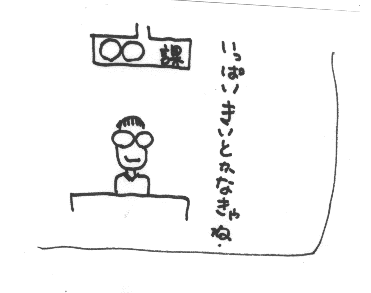 ○○課
いっぱいきいとかなきゃね.